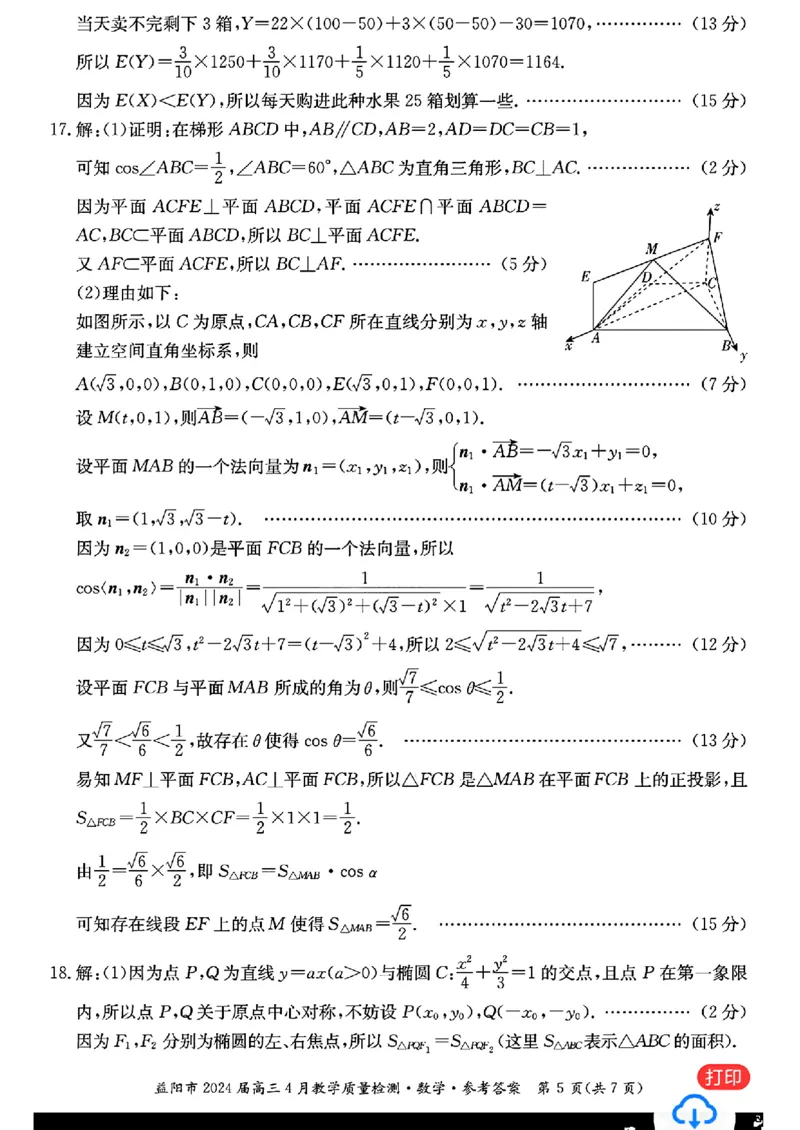 当天卖不完剩下 3 箱,Y=22×(100-50)+3×(50-50)-30=1070, …………… (13 分)
所以 E(Y)=3/10×1250+3/10×1170+1/5×1120+1/5×1070=1164.
因为 E(X)<E(Y),所以每天购进此种水果 25 箱划算一些. ……………………… (15 分)
17.解:(1)证明:在梯形 ABCD 中,AB∥CD,AB=2,AD=DC=CB=1,
可知 cos∠ABC=1/2,∠ABC=60°,△ABC 为直角三角形,BC⊥AC. ……………… (2 分)
因为平面 ACFE⊥平面 ABCD,平面 ACFE∩平面 ABCD=
AC,BC⊂平面 ABCD,所以 BC⊥平面 ACFE.
又 AF⊂平面 ACFE,所以 BC⊥AF. …………………… (5 分)
(2)理由如下:
如图所示,以 C 为原点,CA,CB,CF 所在直线分别为 x,y,z 轴
建立空间直角坐标系,则
z
F
M
E
D
C
A
B
x
y
A(√3,0,0),B(0,1,0),C(0,0,0),E(√3,0,1),F(0,0,1). ………………………… (7 分)
设 M(t,0,1),则AB→=(-√3,1,0),AM→=(t-√3,0,1).
设平面 MAB 的一个法向量为 n₁=(x₁,y₁,z₁),则{n₁·AB→=-√3x₁+y₁=0,
n₁·AM→=(t-√3)x₁+z₁=0,
取 n₁=(1,√3,√3-t). ……………………………………………………………… (10 分)
因为 n₂=(1,0,0)是平面 FCB 的一个法向量,所以
cos⟨n₁,n₂⟩=n₁·n₂/|n₁||n₂|=1/√(1²+(√3)²+(√3-t)²)×1=1/√(t²-2√3t+7),
因为 0≤t≤√3,t²-2√3t+7=(t-√3)²+4,所以 2≤√(t²-2√3t+4)≤√7, ……… (12 分)
设平面 FCB 与平面 MAB 所成的角为 θ,则√7/7≤cos θ≤1/2.
又√7/7<√6/6<1/2,故存在 θ 使得 cos θ=√6/6. ………………………………………… (13 分)
易知 MF⊥平面 FCB,AC⊥平面 FCB,所以△FCB 是△MAB 在平面 FCB 上的正投影,且
S△FCB=1/2×BC×CF=1/2×1×1=1/2.
由1/2=√6/6×√6/2,即 S△FCB=S△MAB·cos α
可知存在线段 EF 上的点 M 使得 S△MAB=√6/2. …………………………………… (15 分)
18.解:(1)因为点 P,Q 为直线 y=ax(a>0)与椭圆 C:x²/4+y²/3=1 的交点,且点 P 在第一象限
内,所以点 P,Q 关于原点中心对称,不妨设 P(x₀,y₀),Q(-x₀,-y₀). …………… (2 分)
因为 F₁,F₂ 分别为椭圆的左、右焦点,所以 S△PQF₁=S△PQF₂(这里 S△ABC表示△ABC 的面积).
益阳市 2024 届高三 4 月教学质量检测·数学·参考答案 第 5 页(共 7 页)
打印